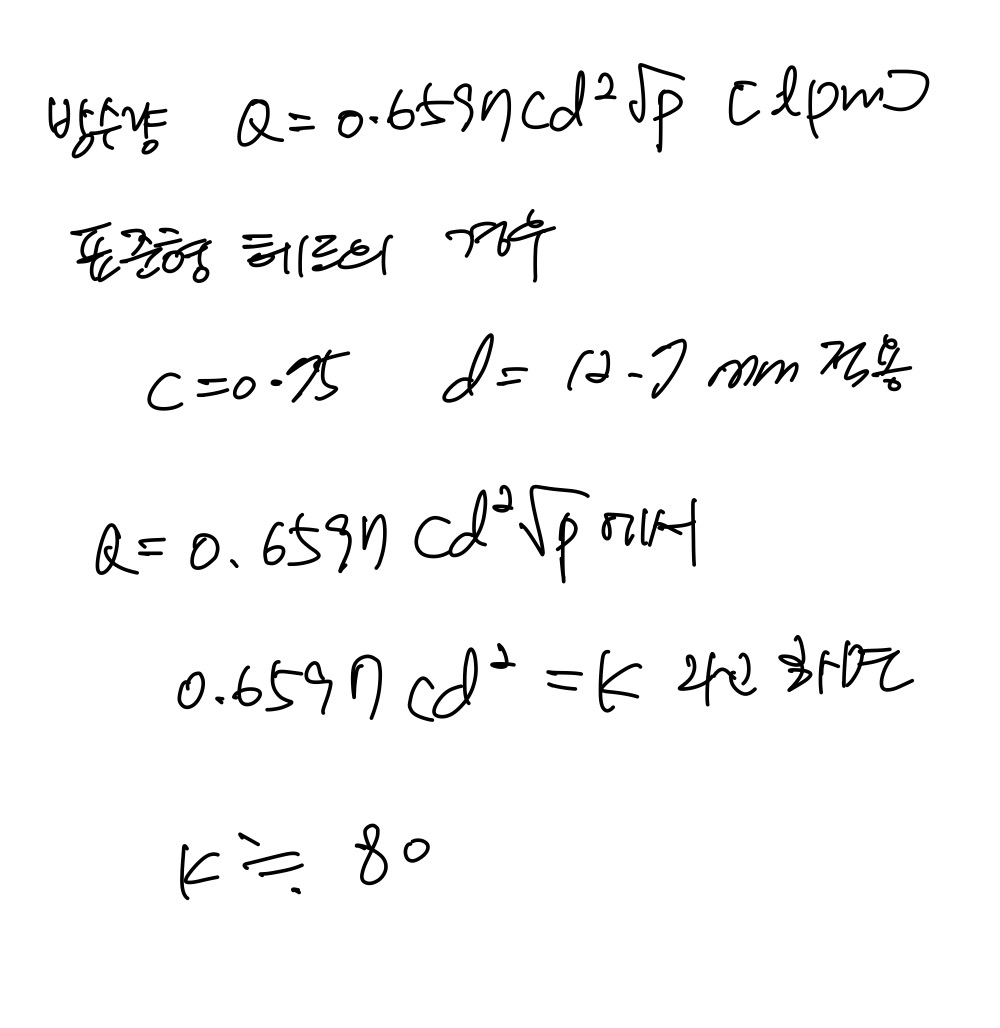 방수량 Q = 0.6597cd²√p (lpm)
표준형 헤드의 경우
c = 0.75 d = 12.7 mm 적용
Q = 0.6597 cd²√p 에서
0.6597 cd² = K 라고 하면
K ≒ 80